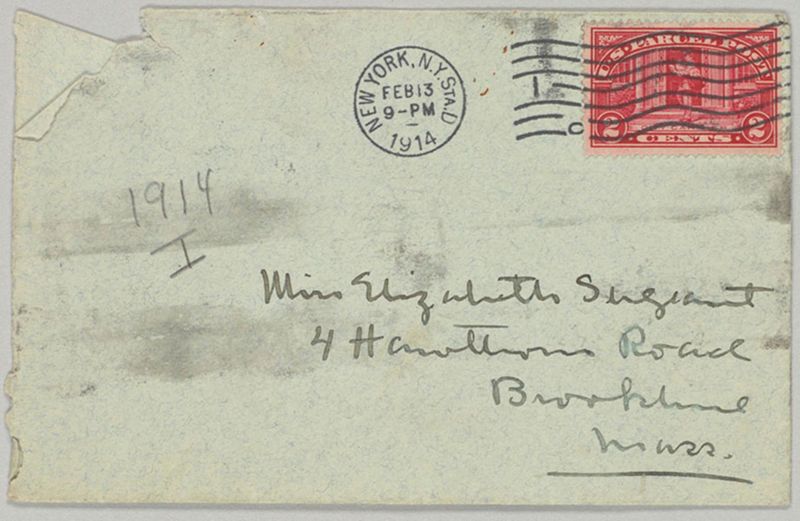 NEW YORK, N.Y. STA. D
FEB 13
9-PM
1914
U.S. PARCEL POST
2 2
CENTS
1914
I
Miss Elizabeth Sergeant
4 Hawthorne Road
Brookline
Mass.